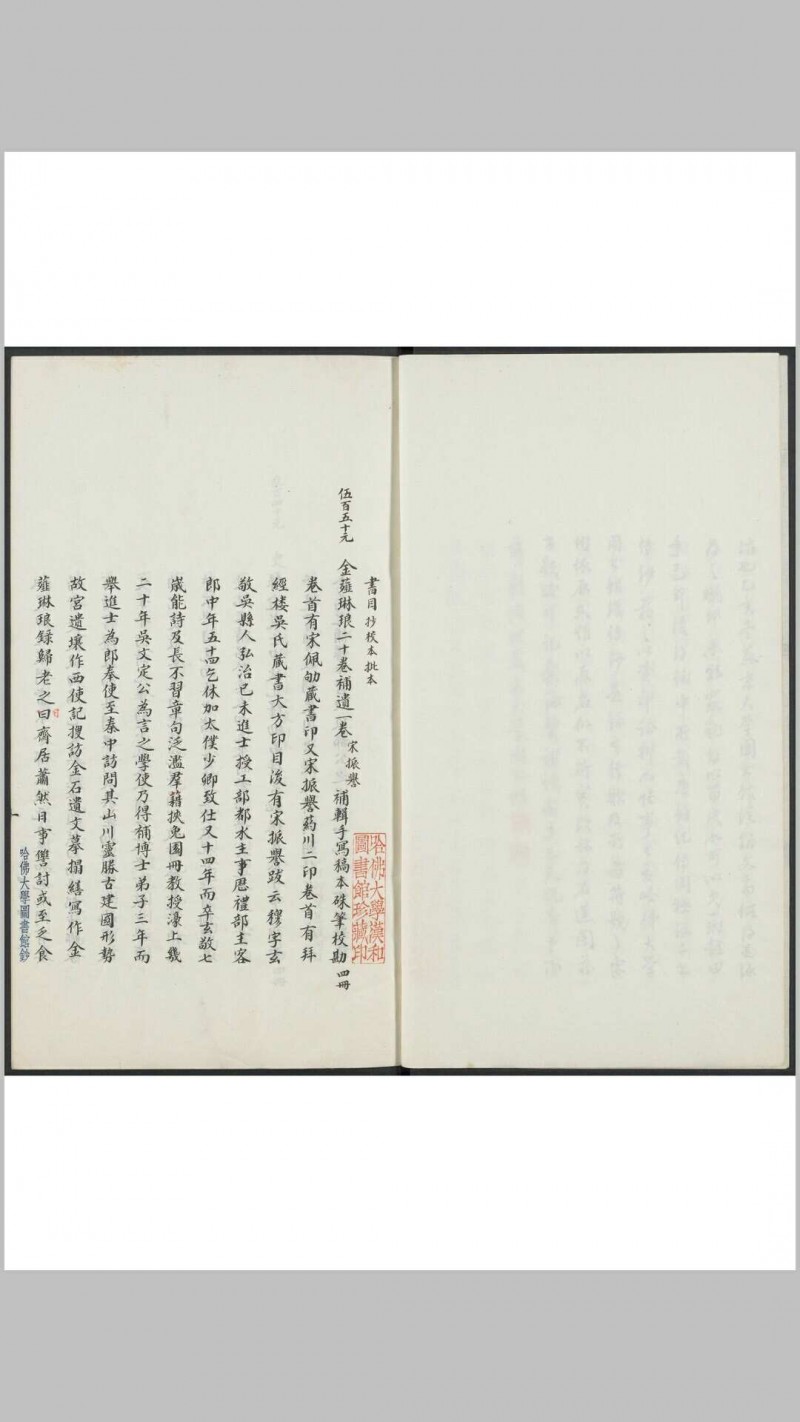 書目 抄校本 批本
伍百五十元 金薤琳琅二十卷補遺一卷 宋振譽 補輯手寫稿本硃筆校勘 四冊
卷首有宋佩劬藏書印又宋振譽葯川二印卷首有拜
經樓吳氏藏書大方印目後有宋振譽跋云穆字玄
敬吳縣人弘治己未進士授工部都水主事恩禮部主客
郎中年五十四乞休加太僕少卿致仕又十四年而卒玄敬七
歲能詩及長不習章句泛濫羣籍挾兔園冊教授濠上幾
二十年吳文定公為言之學使乃得補博士弟子三年而
舉進士為郎奉使至秦中訪問其山川靈勝古建國形勢
故宮遺壤作西使記搜訪金石遺文摹搨繕寫作金
薤琳琅錄歸老之日齋居蕭然日事讐討或至乏食
哈佛大學漢和
圖書館珍藏印
一
哈佛大學圖書館鈔